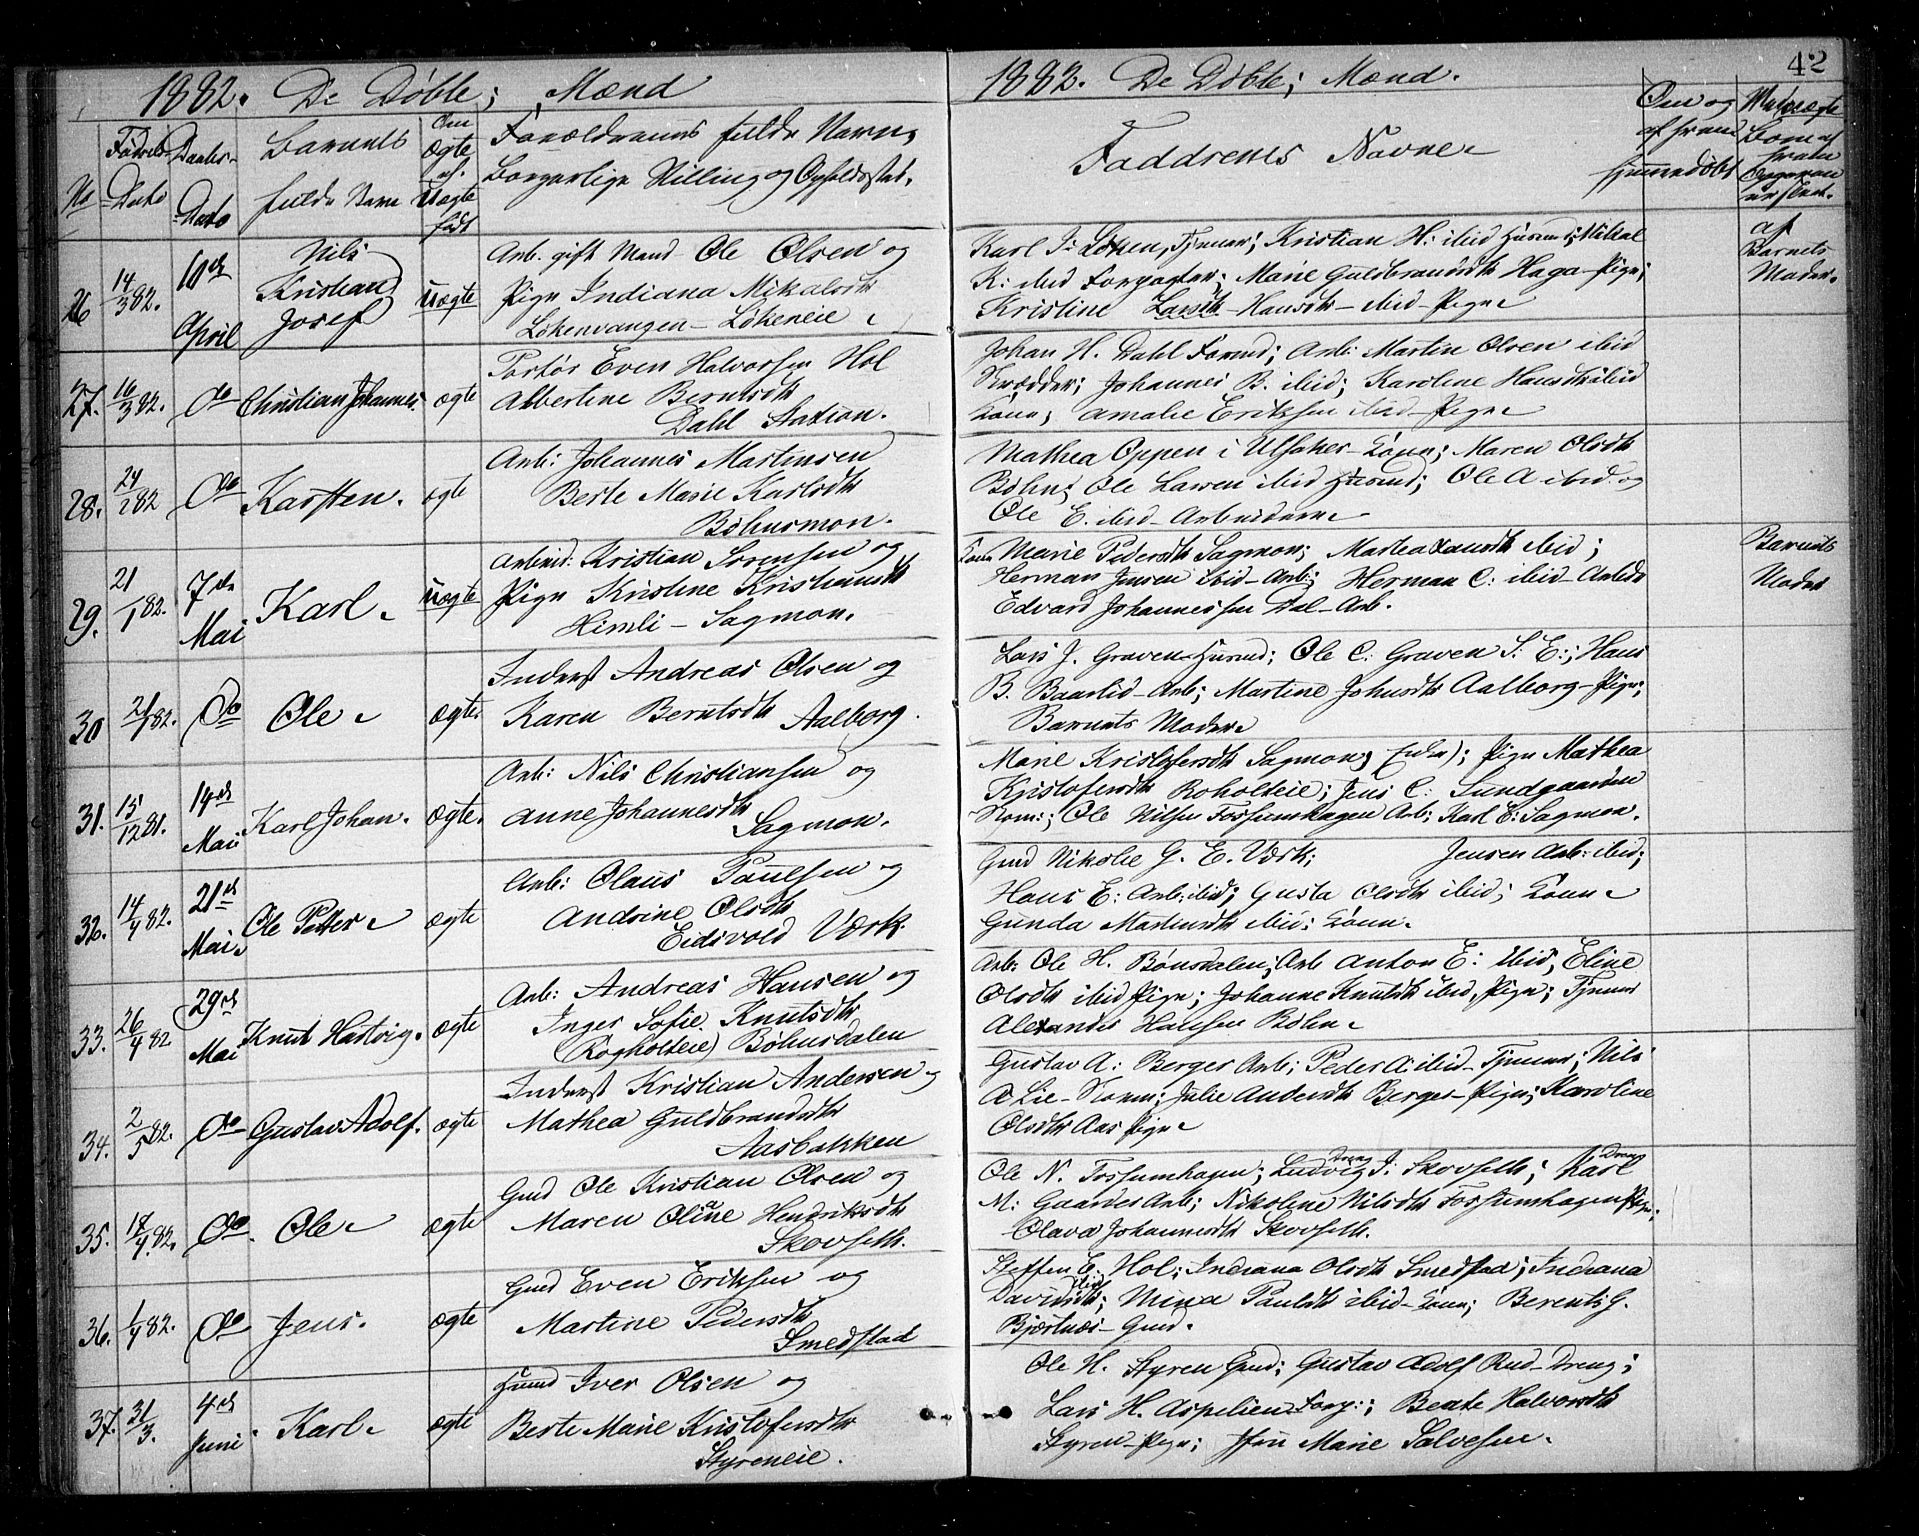 42
1882. De Døbte; Mænd
No
Fødsels-
Dato
Daabs-
Dato
Barnets
fulde Navn
Om
ægte
el.
uægte
født
Forældrenes fulde Navn,
Borgerlige Stilling og Opholdssted.
26
14/3 82.
10de
April
Nils
Kristian
Josef
uægte
Arb. gift Mand Ole Olsen og
Pige Indiana Mikalsdtr
Løkenvangen - Løkeneie
27.
16/3 82.
Do
Christian Johannes.
ægte
Portør Even Halvorsen Hol
Albertine Berntsdtr
Dahl Station.
28.
Do
Karsten.
ægte
Arb: Johannes Martinsen
Berte Marie Karlsdtr
Bøhnsmon.
29.
21/1 82.
7de
Mai
Karl
uægte
Arbeid: Kristian Sørensen og
Pige Kristine Kristiansdtr
Himli - Sagmon.
30
Do
Ole
ægte
Inderst Andreas Olsen og
Karen Berntsdtr Aalborg.
31.
15/12 81.
14de
Mai
Karl Johan.
ægte.
Arb: Nils Christiansen og
Anne Johannesdtr
Sagmon.
32.
14/4 82.
21de
Mai
Ole Petter
ægte
Arb: Olaus Poulsen og
Andrine Olsdtr
Eidsvold Værk.
33.
26/4 82
29de
Mai
Knut Hartvig.
ægte
Arb: Andreas Hansen og
Inger Sofie Knutsdtr
(Rogholteie) Bøhnsdalen
34.
2/5 82.
Do
Gustav Adolf.
ægte
Inderst Kristian Andersen og
Mathea Guldbrandsdtr
Aasbakken
35.
18/4 82.
Do
Ole
ægte
Gmd Ole Kristian Olsen og
Maren Oline Hendriksdtr
Skovseth.
36.
1/4 82.
Do
Jens.
ægte
Gmd Even Eriksen og
Martine Pedersdtr
Smedstad
37.
31/3.
4de
Juni
Karl
ægte
Husmd Iver Olsen og
Berte Marie Kristofersdtr
Styreneie.
1882. De Døbte; Mænd.
Faddrenes Navne
Om og
af hvem
hjemmedøbt
Barnets
Moder.
Karl J: Løken, Tjener; Kristian H: ibid Husmd; Mikal
K: ibid Forpagter; Marie Guldbrandsdtr Haga - Pige;
Kristine Hansdtr - ibid - Pige
Johan H. Dahl Formd; Arb: Martin Olsen ibid
Skrædder; Johannes B. ibid; Karoline Hansdtr ibid
Kone; Amalie Eriksen ibid - Pige
Mathea Oppen i Ulsaker - Kone; Maren Olsdtr
Bøhn; Ole Larsen ibid Husmd; Ole A ibid og
Ole E. ibid - Arbeidere
Kone Marie Pedersdtr Sagmon; Martea Larsdtr ibid;
Herman Jensen ibid - Arb; Herman C: ibid - Arbdr
Edvard Johannessen Dal - Arb.
Barnets
Moder
Lars J. Graven - Husmd; Ole C: Graven S: E:; Hans
B. Baarlid - Arb; Martine Johnsdtr Aalborg - Pige;
Barnets Moder
Marie Kristofersdtr Sagmon; Pige Mathea
Kristofersdtr Roholteie; Jens C: Sundgaarden
Ole Nilsen Fossumhagen Arb; Karl E: Sagmon.
Gmd Nikolie G. E. Værk; Jensen Arb: ibid;
Hans E: Arb: ibid; Gusta Olsdtr ibid; Kone
Gunda Martinsdtr ibid; Kone.
Arb: Ole H. Bønsdalen; Arb Anton E: ibid; Eline
Olsdtr ibid Pige; Johanne Knutsdtr ibid, Pige; Tjener
Alexander Hansen Bøhn
Gustav A: Berger Arb; Peder A: ibid - Tjener; Nils
A Lie - Julie Andersdtr Berger - Pige; Karoline
Olsdtr Aas Pige
Ole N. Fossumhagen; Ludvig J: Skovseth; Karl
M: Gaarder Arb; Nikoline Nilsdtr Fossumhagen Pige;
Olava Johannesdtr Skovseth.
Steffen E. Hol; Indiana Olsdtr Smedstad; Indiana
Davidsdtr ibid; Mina Paulsdtr ibid - Kone; Berent G.
Bjørtnes - Gmd.
Ole H. Styren Gmd; Gustav Adolf Rud - Dreng;
Lars H. Aspelien Forp:; Beate Halvorsdtr
Styren - Pige; Marie Salvesen.